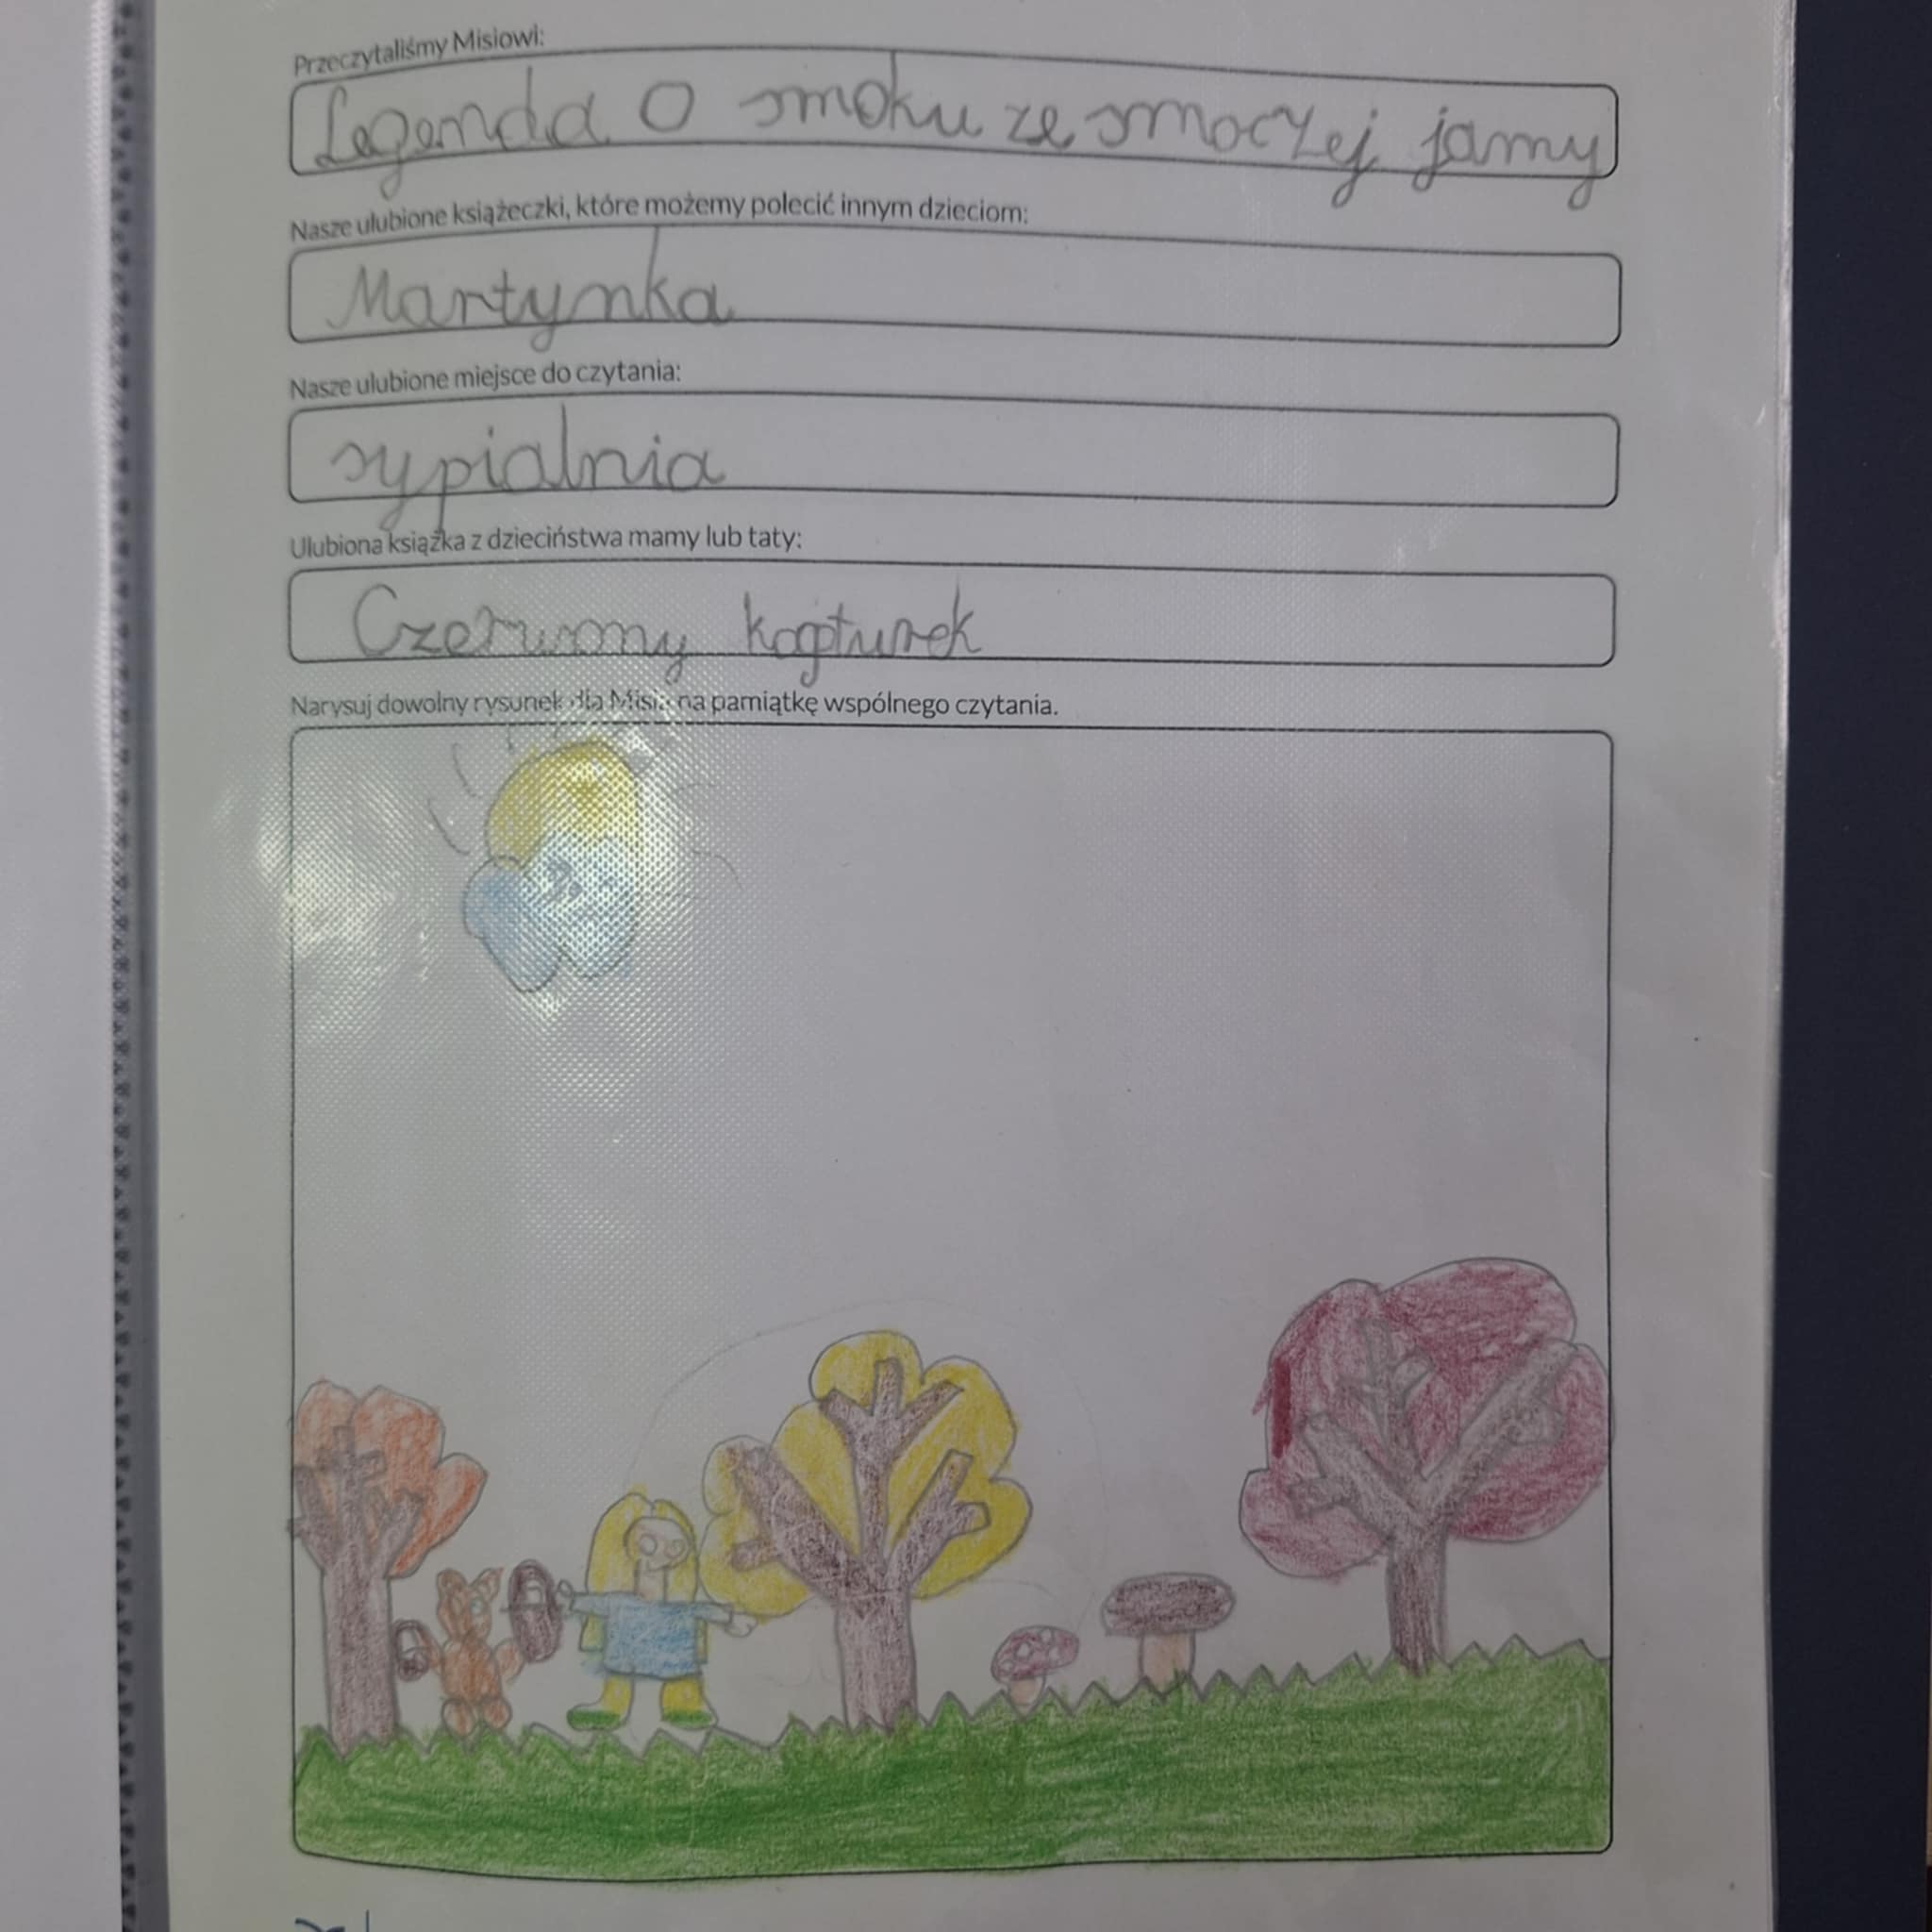 Przeczytaliśmy Misiowi:
Legenda o smoku ze smoczej jamy
Nasze ulubione książeczki, które możemy polecić innym dzieciom:
Martynka
Nasze ulubione miejsce do czytania:
sypialnia
Ulubiona książka z dzieciństwa mamy lub taty:
Czerwony kapturek
Narysuj dowolny rysunek dla Misia na pamiątkę wspólnego czytania.